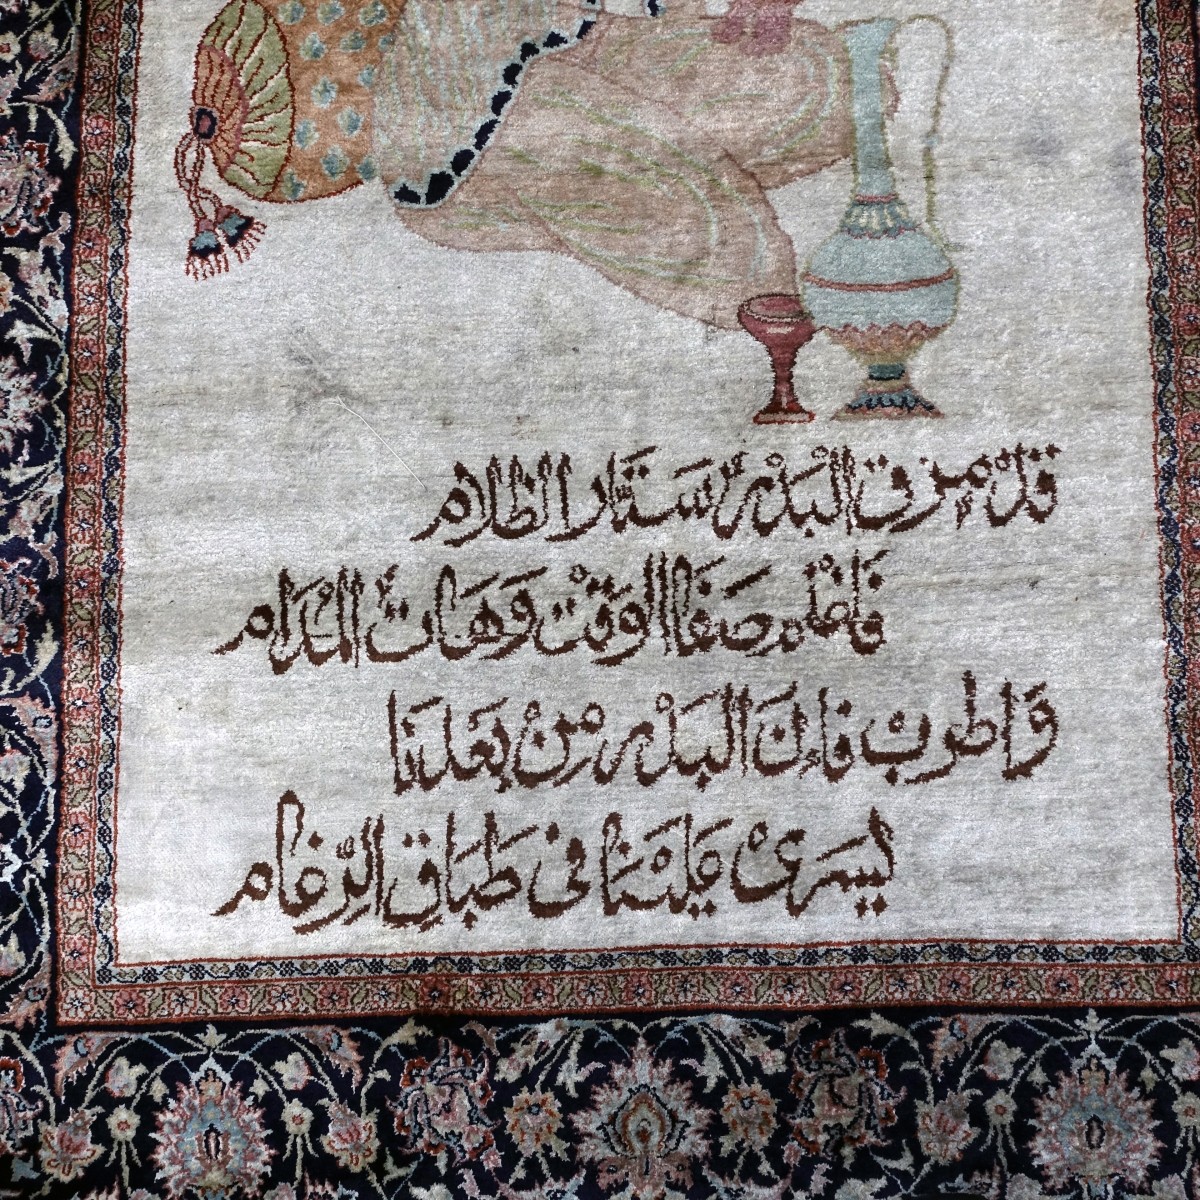 قدْ مزق البَدْرُ سَتَار الظلام
فَاغنْم صَفَا الوَقْت وَهَات المُدَام
وَاطرب فَإنَ البَدْر مِنْ بَعْدنَا
يَسَرىْ عَلَيْنَا فى طبَاق الرِّغَام